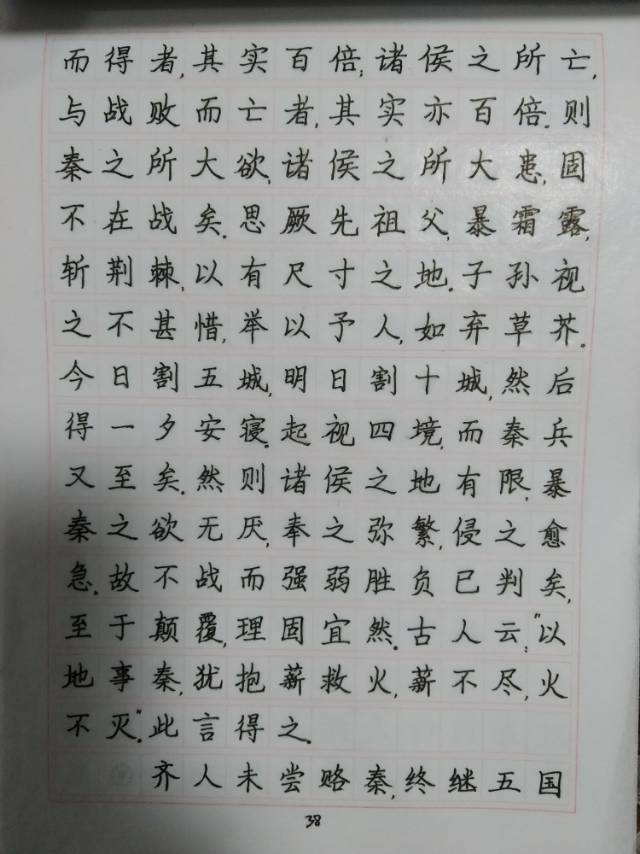 而得者,其实百倍;诸侯之所亡,
与战败而亡者,其实亦百倍.则
秦之所大欲,诸侯之所大患,固
不在战矣.思厥先祖父,暴霜露,
斩荆棘,以有尺寸之地.子孙视
之不甚惜,举以予人,如弃草芥.
今日割五城,明日割十城,然后
得一夕安寝.起视四境,而秦兵
又至矣.然则诸侯之地有限,暴
秦之欲无厌,奉之弥繁,侵之愈
急.故不战而强弱胜负已判矣,
至于颠覆,理固宜然.古人云:"以
地事秦,犹抱薪救火,薪不尽,火
不灭".此言得之.
齐人未尝赂秦,终继五国
38